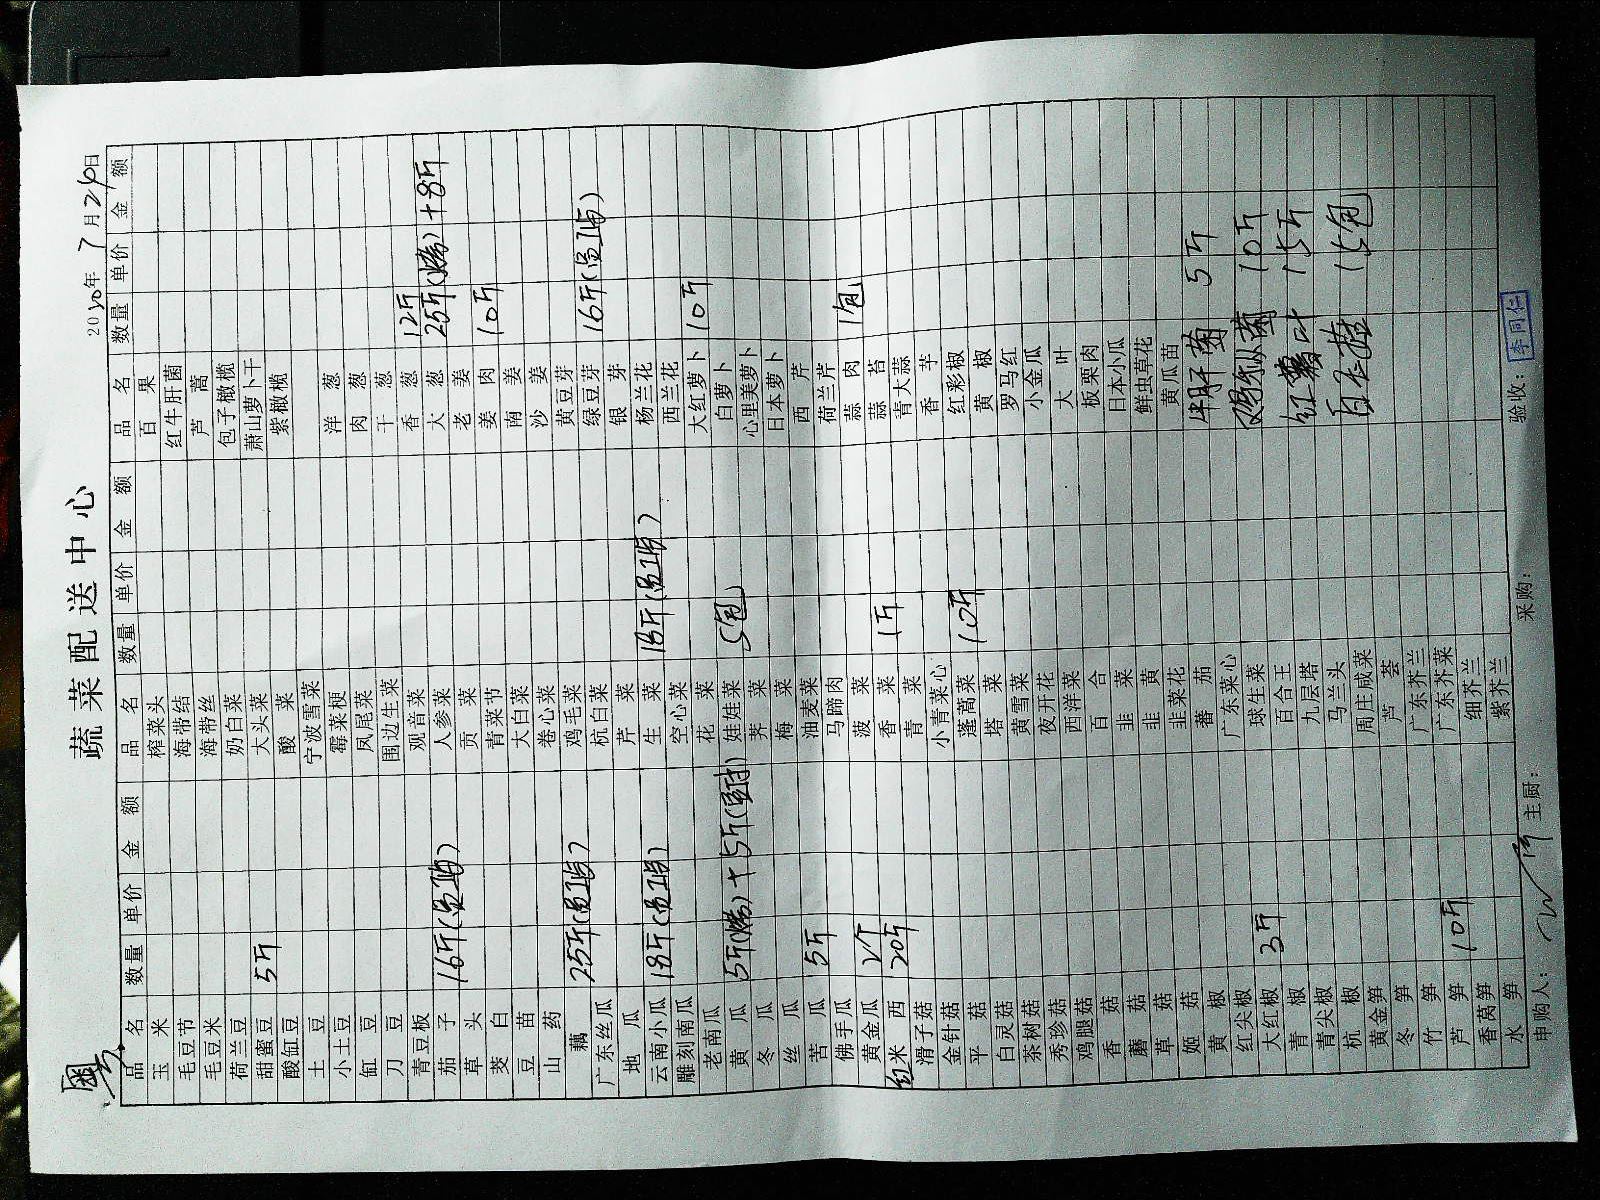 粤
蔬菜配送中心
2010年7月24日
品名 数量 单价 金额 品名 数量 单价 金额 品名 数量 单价 金额
玉米 榨菜头 百果
毛豆节 海带结 红牛肝菌
毛豆米 海带丝 芦蒿
荷兰豆 奶白菜 包子橄榄
甜蜜豆 5斤 大头菜 萧山萝卜干
酸缸豆 酸菜 紫橄榄
土豆 宁波雪菜
小土豆 霉菜梗 洋葱
缸豆 凤尾菜 肉葱
刀豆 围边生菜 干葱
青豆板 观音菜 香葱 12斤
茄子 16斤(员工) 人参菜 大葱 25斤(烧)+8斤
草头 贡菜 老姜
茭白 青菜节 姜肉 10斤
豆苗 大白菜 南姜
山药 卷心菜 沙姜
藕 25斤(员工) 鸡毛菜 黄豆芽
广东丝瓜 杭白菜 绿豆芽 16斤(员工)
地瓜 芹菜 银芽
云南小瓜 18斤(员工) 生菜 18斤(员工) 杨兰花
雕刻南瓜 空心菜 西兰花
老南瓜 花菜 大红萝卜 10斤
黄瓜 5斤(烧)+5斤 娃娃菜 5包 白萝卜
冬瓜 荠菜 心里美萝卜
丝瓜 梅菜 日本萝卜
苦瓜 5斤 油麦菜 西芹
佛手瓜 马蹄肉 荷兰芹
黄金瓜 2个 菠菜 蒜肉 1包
红米西 20斤 香菜 1斤 蒜苔
滑子菇 青菜 青大蒜
金针菇 小青菜心 香芋
平菇 蓬蒿菜 10斤 红彩椒
白灵菇 塔菜 黄椒
茶树菇 黄雪菜 罗马红
秀珍菇 夜开花 小金瓜
鸡腿菇 西洋菜 大叶
香菇 百合 板栗肉
蘑菇 韭菜 日本小瓜
草菇 韭黄 鲜虫草花
姬菇 韭菜花 黄瓜苗
黄椒 番茄 牛肝菌 5斤
红尖椒 广东菜心
大红椒 3斤 球生菜 鸡枞菌 10斤
青椒 百合王
青尖椒 九层塔 红薯叶 15斤
杭椒 马兰头
黄金笋 周庄咸菜 15包
冬笋 芦荟
竹笋 广东芥兰
芦笋 10斤 广东芥菜
香莴笋 细芥兰
水笋 紫芥兰
申购人： 主厨： 采购： 验收：李同仁